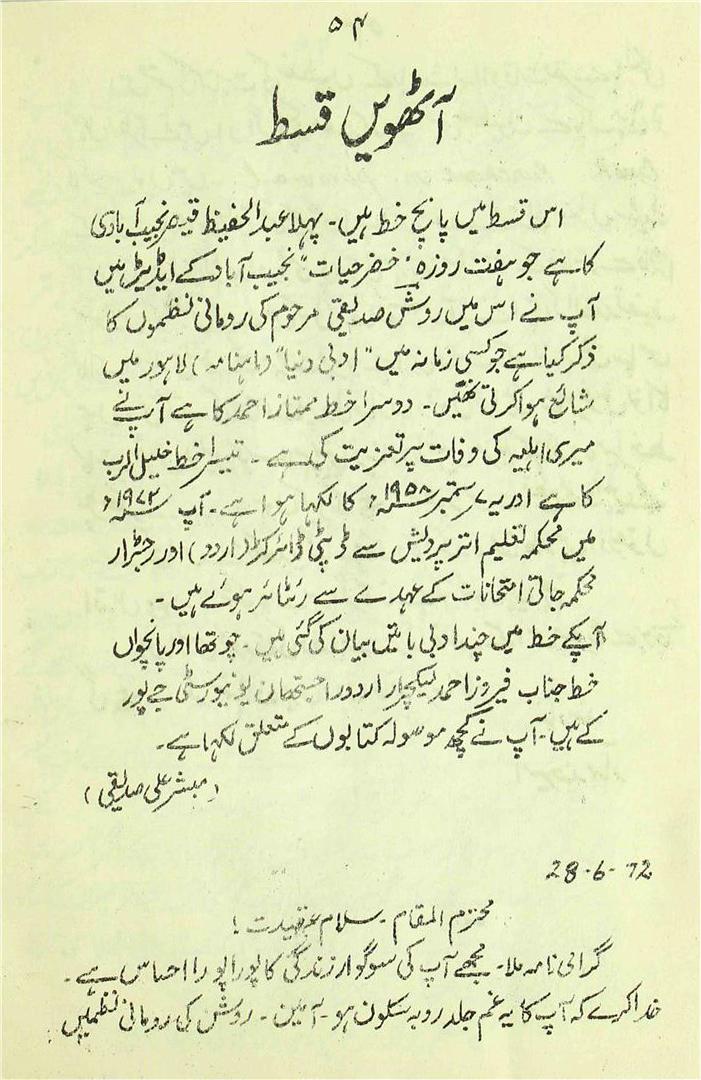 ۵۴
آٹھویں قسط
اس قسط میں پانچ خط ہیں۔ پہلا عبدالحفیظ قیصر نجیب آبادی
کا ہے جو ہفت روزہ "خضر حیات" نجیب آباد کے ایڈیٹر ہیں
آپ نے اس میں روش صدیقی مرحوم کی رومانی نظموں کا
ذکر کیا ہے جو کسی زمانہ میں "ادبی دنیا" (ماہنامہ) لاہور میں
شائع ہوا کرتی تھیں۔ دوسرا خط ممتاز احمد کا ہے آپ نے
میری اہلیہ کی وفات پر تعزیت کی ہے۔ تیسرا خط خلیل الرب
کا ہے اور یہ ۷ ستمبر ۱۹۵۸ء کا لکھا ہوا ہے۔ آپ ۱۹۷۲ء
میں محکمہ تعلیم اتر پردیش سے ڈپٹی ڈائرکٹر (اردو) اور رجسٹرار
محکمہ جاتی امتحانات کے عہدے سے رٹائر ہوئے ہیں۔
آپکے خط میں چند ادبی باتیں بیان کی گئی ہیں۔ چوتھا اور پانچواں
خط جناب فیروز احمد لیکچرار اردو راجستھان یونیورسٹی جے پور
کے ہیں۔ آپ نے کچھ موسولہ کتابوں کے متعلق لکھا ہے۔
(مبشر علی صدیقی)
28-6-72
محترم المقام۔ سلام عقیدت!
گرامی نامہ ملا۔ مجھے آپ کی سوگوار زندگی کا پورا پورا احساس ہے۔
خدا کرے کہ آپ کا یہ غم جلد روبہ سکون ہو۔ آمین۔ روش کی رومانی نظمیں